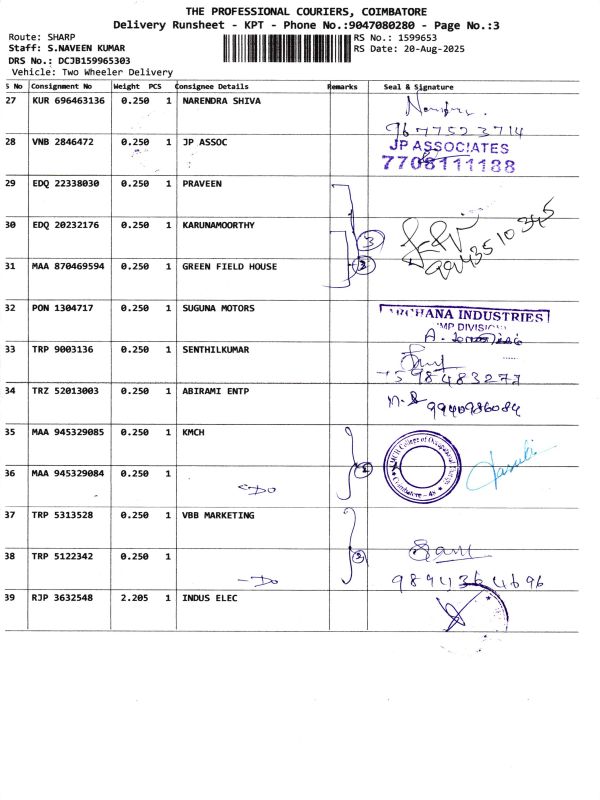 THE PROFESSIONAL COURIERS, COIMBATORE
Delivery Runsheet - KPT - Phone No.:9047080280 - Page No.:3
Route: SHARP RS No.: 1599653
Staff: S.NAVEEN KUMAR RS Date: 20-Aug-2025
DRS No.: DCJB159965303
Vehicle: Two Wheeler Delivery
S No Consignment No Weight PCS Consignee Details Remarks Seal & Signature
27 KUR 696463136 0.250 1 NARENDRA SHIVA
9677523714
28 VNB 2846472 0.250 1 JP ASSOC JP ASSOCIATES
7708111188
29 EDQ 22338030 0.250 1 PRAVEEN
30 EDQ 20232176 0.250 1 KARUNAMOORTHY 3
9943510345
31 MAA 870469594 0.250 1 GREEN FIELD HOUSE
32 PON 1304717 0.250 1 SUGUNA MOTORS ARCHANA INDUSTRIES
33 TRP 9003136 0.250 1 SENTHILKUMAR
34 TRZ 52013003 0.250 1 ABIRAMI ENTP 9940986084
35 MAA 945329085 0.250 1 KMCH KMCH College of Occupational Therapy
Coimbatore - 48
36 MAA 945329084 0.250 1
-Do
37 TRP 5313528 0.250 1 VBB MARKETING
38 TRP 5122342 0.250 1 2
-Do 9894364696
39 RJP 3632548 2.205 1 INDUS ELEC